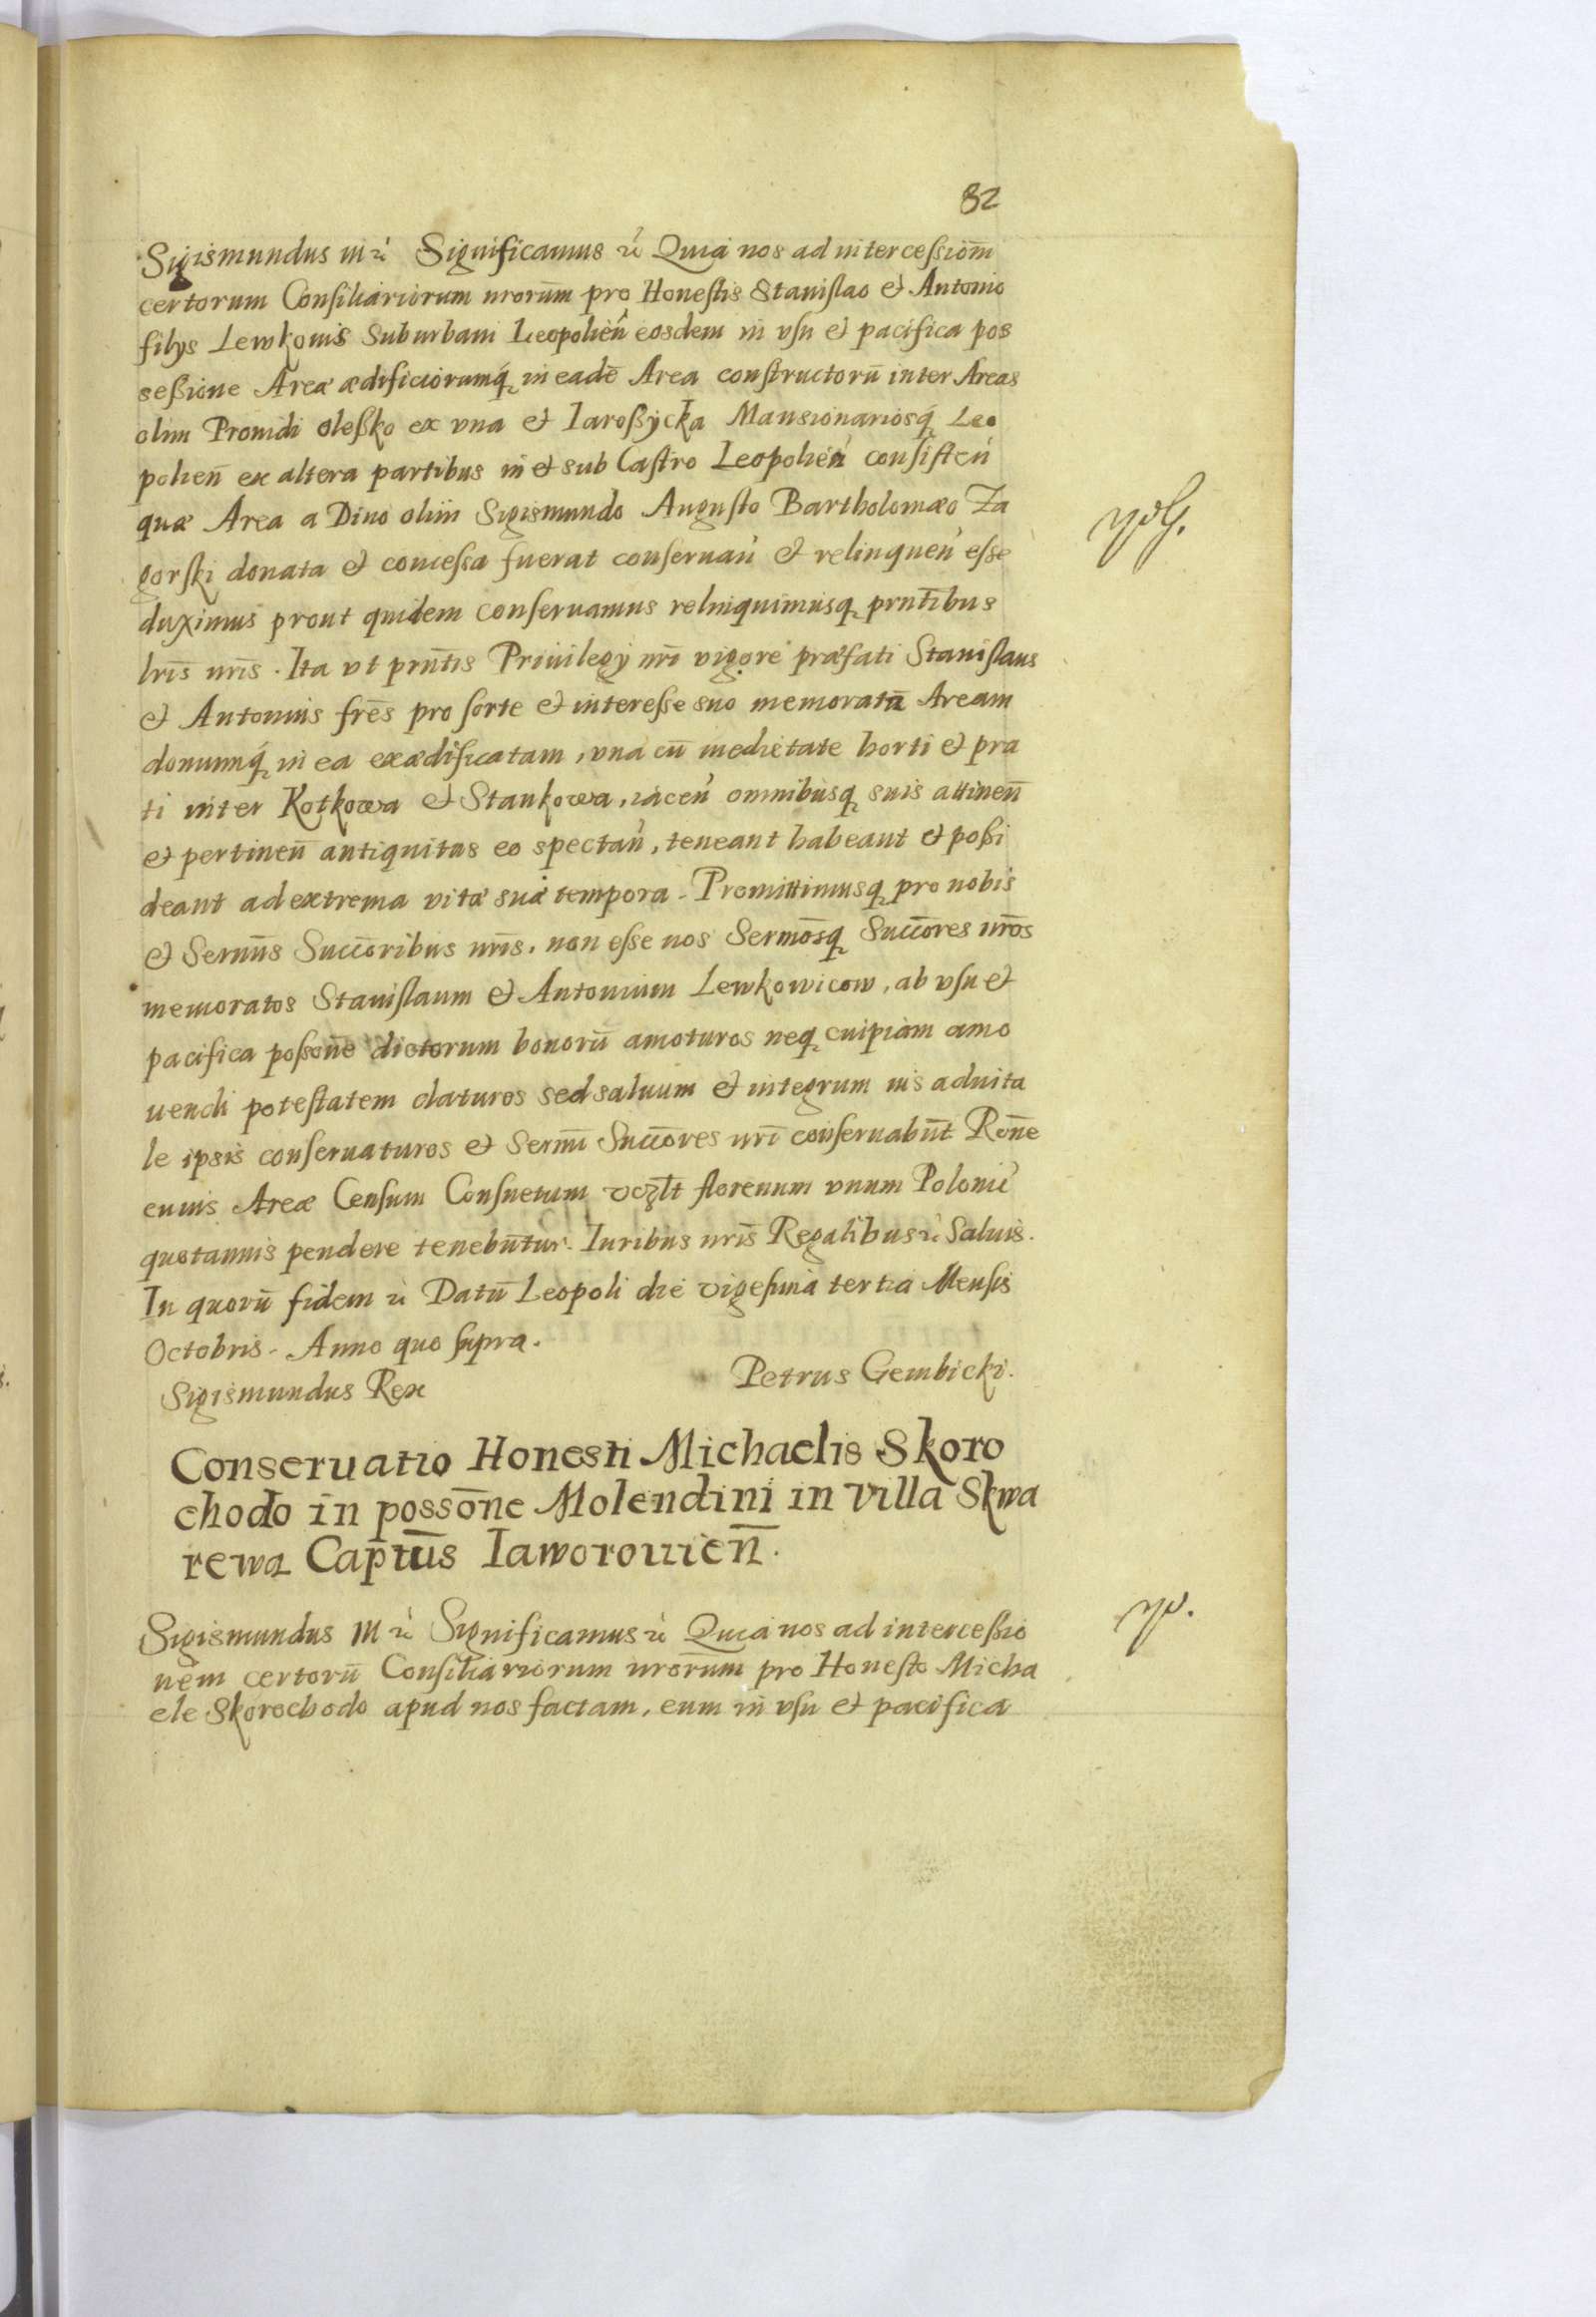 82
Sigismundus III &c Significamus &c Quia nos ad intercessiom̄
certorum Consiliariorum nrorum̄ pro Honestis Stanislao et Antonio
filys Lewkonis Suburbani Leopolien̄ eosdem in vsu et pacifica pos
sessione Areæ ædificiorumq́ in eadē Area constructorū inter Areas
olim Prouidi Olessko ex vna et Iarossycka Mansionariosq́ Leo
polien̄ ex altera partibus in et sub Castro Leopolien̄ consisten̄
quæ Area a Diuo olim Sigismundo Augusto Bartholomæo Za
gorski donata et concessa fuerat conseruan̄ et relinquen̄ esse
duximus prout quidem conseruamus relinquimusq prntībus
lrīs nrīs. Ita vt prn̄tis Priuilegy nrī vigore præfati Stanislaus
et Antonius frēs pro sorte et interesse suo memoratā Aream
domumq́ in ea exædificatam, vna cū medietate horti et pra
ti inter Kotkowa et Stankowa, iacen̄ omnibusq suis attinen̄
et pertinen̄ antiquitus eo spectan̄, teneant habeant et possi
deant ad extrema vitæ suæ tempora. Promittimusq pro nobis
et Sermīs Succōribus nrīs, non esse nos Sermōsq Succōres nrōs
memoratos Stanislaum et Antonium Lewkowicow, ab vsu et
pacifica possoñe dictorum bonorū amoturos neq cuipiam amo
uendi potestatem daturos sed saluum et integrum ius aduita
le ipsis conseruaturos et Sermī Succōres nrī conseruabun̄t Roñe
cuius Areæ Censum Consuetum vczl̄t florenum vnum Polonic̄
quotannis pendere tenebun̄tur. Iuribus nrīs Regalibus &c Saluis.
In quorū fidem &c Datū Leopoli die vigesima tertia Mensis
Octobris. Anno quo supra.
Sigismundus Rex Petrus Gembicki.
Conseruatio Honesti Michaelis Skoro
chodo in possōne Molendini in villa Skwa
rewa Captūs Iaworouien̄.
Sigismundus III &c Significamus &c Quia nos ad intercessio
nem certorū Consiliariorum nrorum̄ pro Honesto Micha
ele Skorochodo apud nos factam, eum in vsu et pacifica